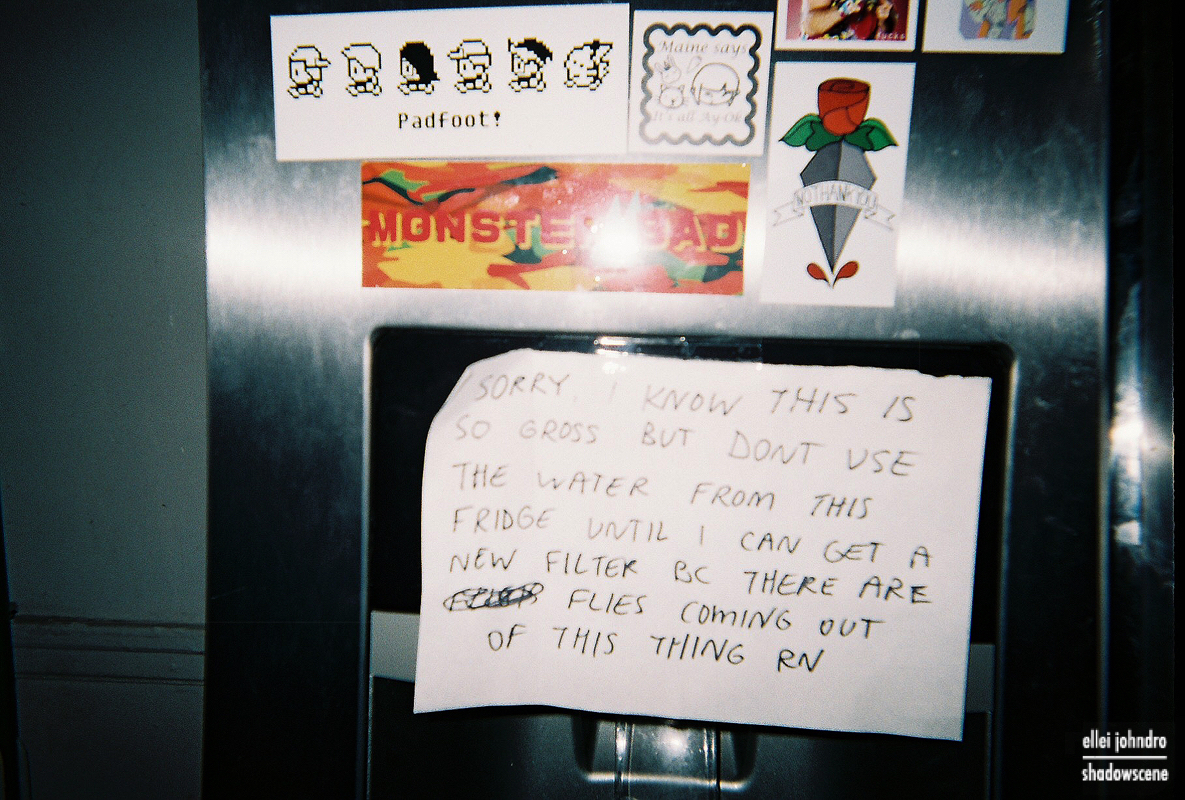 Padfoot!
Maine says
It's all Ay-Ok
fucks
NO THANK YOU
SORRY, I KNOW THIS IS
SO GROSS BUT DONT USE
THE WATER FROM THIS
FRIDGE UNTIL I CAN GET A
NEW FILTER BC THERE ARE
FLIES COMING OUT
OF THIS THING RN
ellei johndro
shadowscene